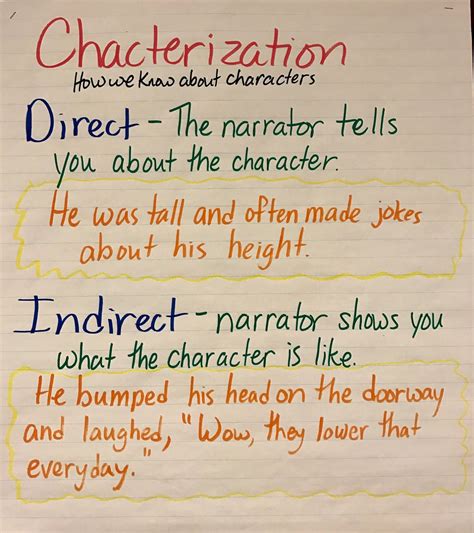 Chacterization
How we know about characters
Direct - The narrator tells
you about the character.
He was tall and often made jokes
about his height.
Indirect - narrator shows you
what the character is like.
He bumped his head on the doorway
and laughed, "Wow, they lower that
everyday."